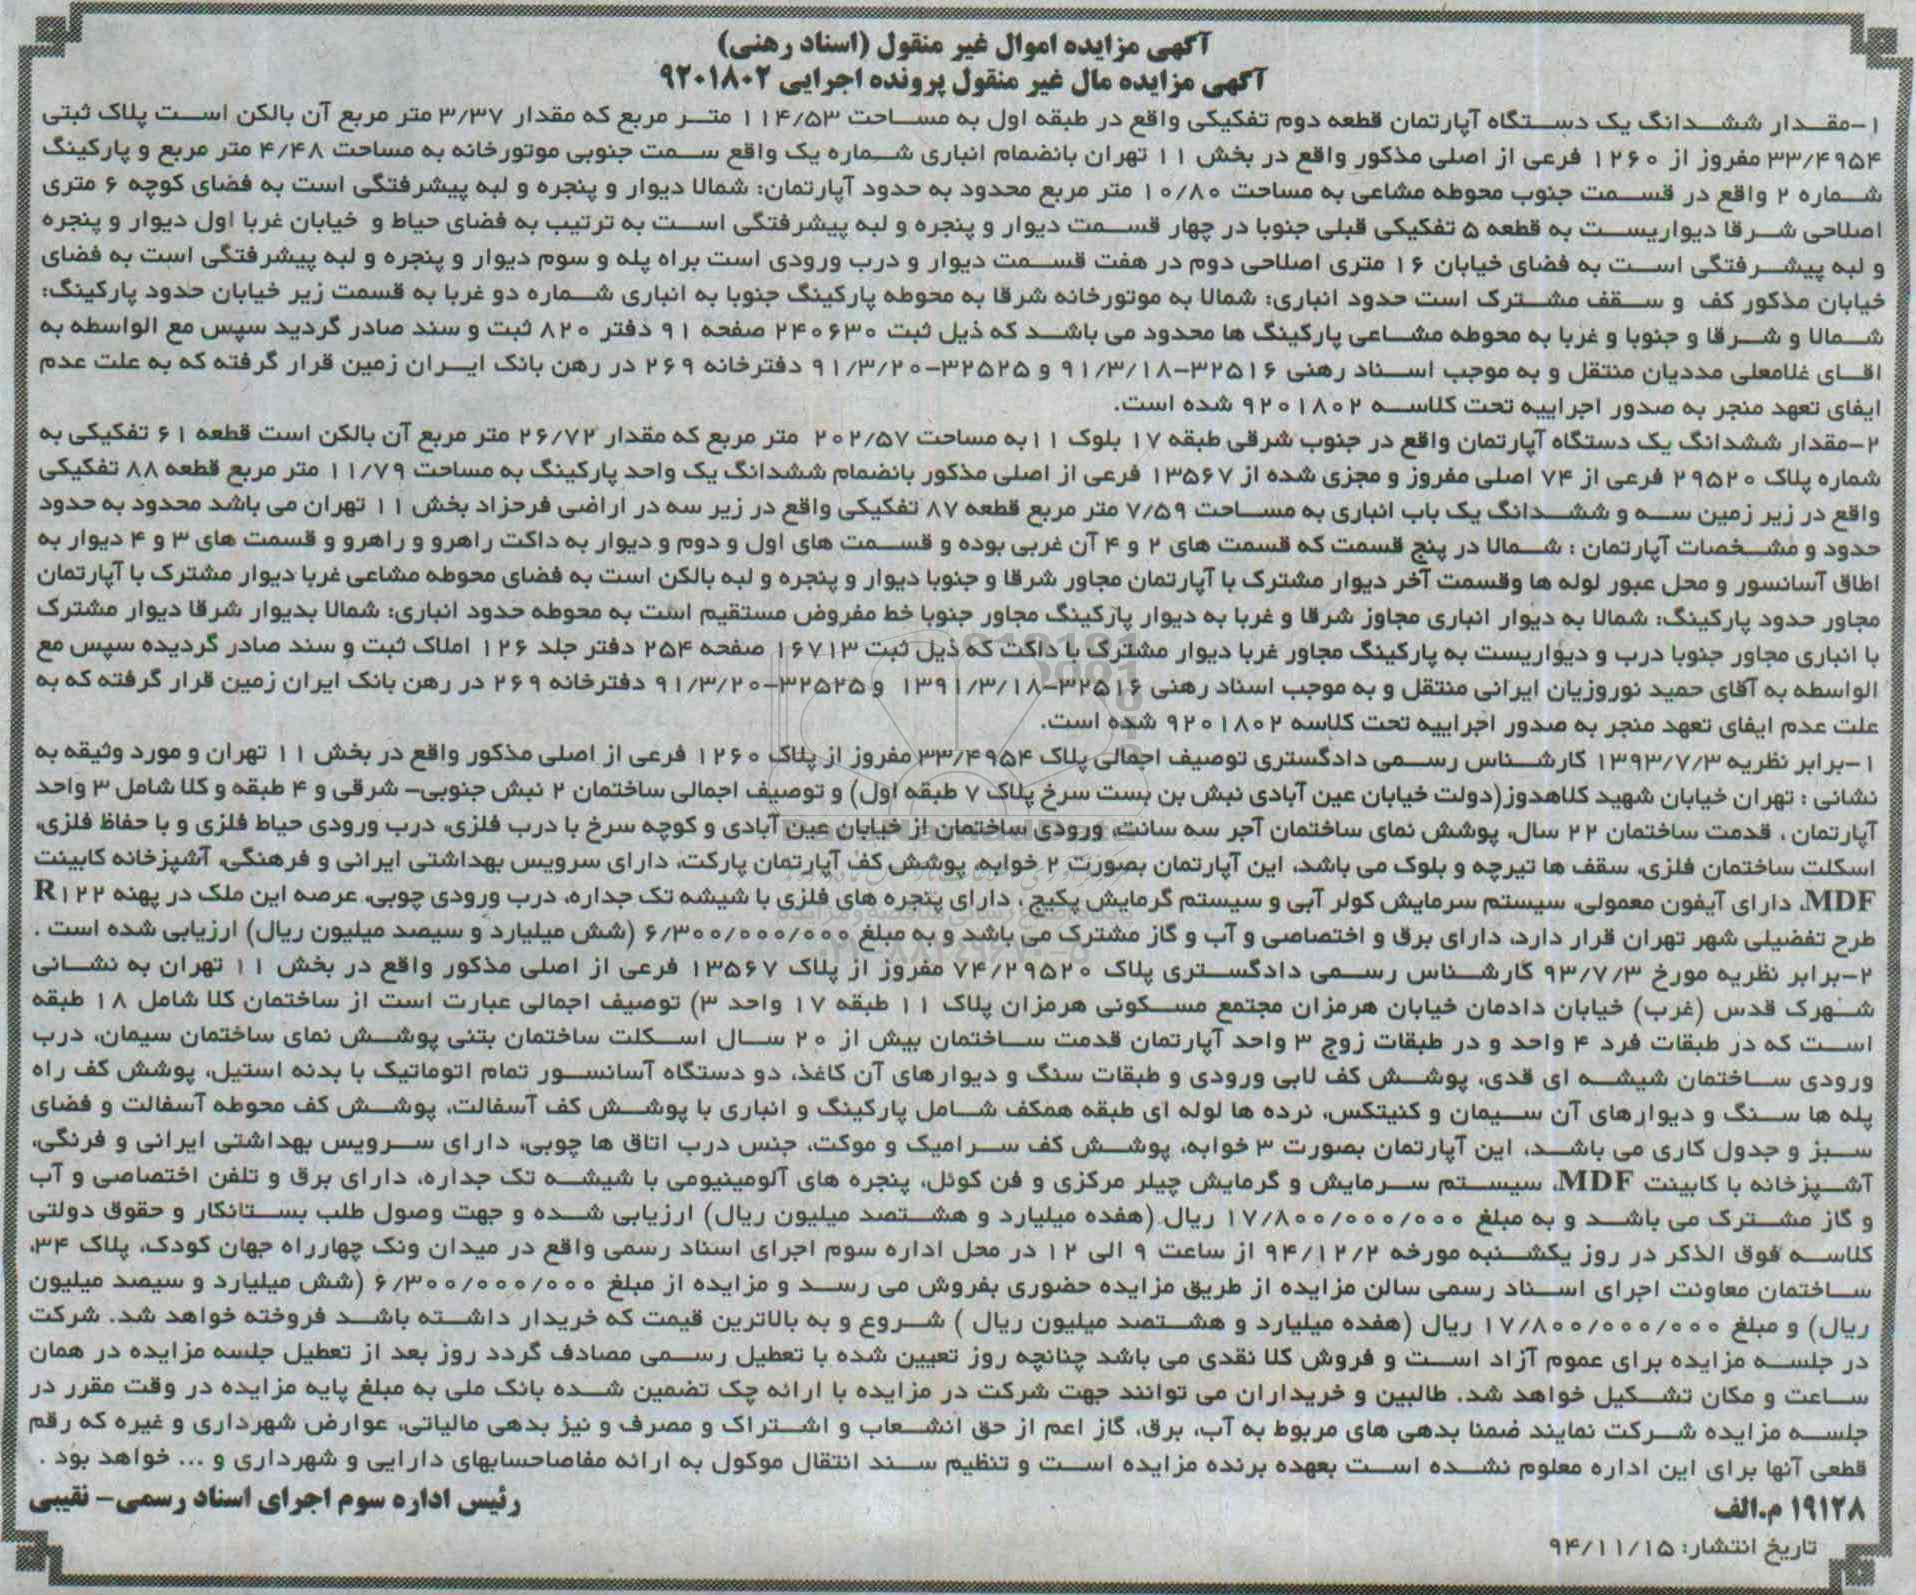 آگهی مزایده اموال غیر منقول (اسناد رهنی)
آگهی مزایده مال غیر منقول پرونده اجرایی ۹۲۰۱۸۰۲
۱-مقدار ششدانگ یک دستگاه آپارتمان قطعه دوم تفکیکی واقع در طبقه اول به مساحت ۱۱۴/۵۳ متر مربع که مقدار ۳/۳۷ متر مربع آن بالکن است پلاک ثبتی
۳۳/۴۹۵۴ مفروز از ۱۲۶۰ فرعی از اصلی مذکور واقع در بخش ۱۱ تهران بانضمام انباری شماره یک واقع سمت جنوبی موتورخانه به مساحت ۴/۴۸ متر مربع و پارکینگ
شماره ۲ واقع در قسمت جنوب محوطه مشاعی به مساحت ۱۰/۸۰ متر مربع محدود به حدود آپارتمان: شمالا دیوار و پنجره و لبه پیشرفتگی است به فضای کوچه ۶ متری
اصلاحی شرقا دیواریست به قطعه ۵ تفکیکی قبلی جنوبا در چهار قسمت دیوار و پنجره و لبه پیشرفتگی است به ترتیب به فضای حیاط و خیابان غربا اول دیوار و پنجره
و لبه پیشرفتگی است به فضای خیابان ۱۶ متری اصلاحی دوم در هفت قسمت دیوار و درب ورودی است براه پله و سوم دیوار و پنجره و لبه پیشرفتگی است به فضای
خیابان مذکور کف و سقف مشترک است حدود انباری: شمالا به موتورخانه شرقا به محوطه پارکینگ جنوبا به انباری شماره دو غربا به قسمت زیر خیابان حدود پارکینگ:
شمالا و شرقا و جنوبا و غربا به محوطه مشاعی پارکینگ ها محدود می باشد که ذیل ثبت ۲۴۰۶۳۰ صفحه ۹۱ دفتر ۸۲۰ ثبت و سند صادر گردید سپس مع الواسطه به
اقای غلامعلی مددیان منتقل و به موجب اسناد رهنی ۳۲۵۱۶-۹۱/۳/۱۸ و ۳۲۵۲۵-۹۱/۳/۲۰ دفترخانه ۲۶۹ در رهن بانک ایران زمین قرار گرفته که به علت عدم
ایفای تعهد منجر به صدور اجراییه تحت کلاسه ۹۲۰۱۸۰۲ شده است.
۲-مقدار ششدانگ یک دستگاه آپارتمان واقع در جنوب شرقی طبقه ۱۷ بلوک ۱۱به مساحت ۲۰۲/۵۷ متر مربع که مقدار ۲۶/۷۲ متر مربع آن بالکن است قطعه ۶۱ تفکیکی به
شماره پلاک ۲۹۵۲۰ فرعی از ۷۴ اصلی مفروز و مجزی شده از ۱۳۵۶۷ فرعی از اصلی مذکور بانضمام ششدانگ یک واحد پارکینگ به مساحت ۱۱/۷۹ متر مربع قطعه ۸۸ تفکیکی
واقع در زیر زمین سه و ششدانگ یک باب انباری به مساحت ۷/۵۹ متر مربع قطعه ۸۷ تفکیکی واقع در زیر سه در اراضی فرحزاد بخش ۱۱ تهران می باشد محدود به حدود
حدود و مشخصات آپارتمان : شمالا در پنج قسمت که قسمت های ۲ و ۴ آن غربی بوده و قسمت های اول و دوم و دیوار به داکت راهرو و راهرو و قسمت های ۳ و ۴ دیوار به
اطاق آسانسور و محل عبور لوله ها وقسمت آخر دیوار مشترک با آپارتمان مجاور شرقا و جنوبا دیوار و پنجره و لبه بالکن است به فضای محوطه مشاعی غربا دیوار مشترک با آپارتمان
مجاور حدود پارکینگ: شمالا به دیوار انباری مجاور شرقا و غربا به دیوار پارکینگ مجاور جنوبا خط مفروض مستقیم است به محوطه حدود انباری: شمالا بدیوار شرقا دیوار مشترک
با انباری مجاور جنوبا درب و دیواریست به پارکینگ مجاور غربا دیوار مشترک با داکت که ذیل ثبت ۱۶۷۱۳ صفحه ۲۵۴ دفتر جلد ۱۲۶ املاک ثبت و سند صادر گردیده سپس مع
الواسطه به آقای حمید نوروزیان ایرانی منتقل و به موجب اسناد رهنی ۳۲۵۱۶-۱۳۹۱/۳/۱۸ و ۳۲۵۲۵-۹۱/۳/۲۰ دفترخانه ۲۶۹ در رهن بانک ایران زمین قرار گرفته که به
علت عدم ایفای تعهد منجر به صدور اجراییه تحت کلاسه ۹۲۰۱۸۰۲ شده است.
۱-برابر نظریه ۱۳۹۳/۷/۳ کارشناس رسمی دادگستری توصیف اجمالی پلاک ۳۳/۴۹۵۴ مفروز از پلاک ۱۲۶۰ فرعی از اصلی مذکور واقع در بخش ۱۱ تهران و مورد وثیقه به
نشانی : تهران خیابان شهید کلاهدوز(دولت خیابان عین آبادی نبش بن بست سرخ پلاک ۷ طبقه اول) و توصیف اجمالی ساختمان ۲ نبش جنوبی- شرقی و ۴ طبقه و کلا شامل ۳ واحد
آپارتمان ، قدمت ساختمان ۲۲ سال، پوشش نمای ساختمان آجر سه سانت، ورودی ساختمان از خیابان عین آبادی و کوچه سرخ با درب فلزی، درب ورودی حیاط فلزی و با حفاظ فلزی،
اسکلت ساختمان فلزی، سقف ها تیرچه و بلوک می باشد، این آپارتمان بصورت ۲ خوابه، پوشش کف آپارتمان پارکت، دارای سرویس بهداشتی ایرانی و فرهنگی، آشپزخانه کابینت
MDF، دارای آیفون معمولی، سیستم سرمایش کولر آبی و سیستم گرمایش پکیج ، دارای پنجره های فلزی با شیشه تک جداره، درب ورودی چوبی، عرصه این ملک در پهنه R۱۲۲
طرح تفضیلی شهر تهران قرار دارد، دارای برق و اختصاصی و آب و گاز مشترک می باشد و به مبلغ ۶/۳۰۰/۰۰۰/۰۰۰ (شش میلیارد و سیصد میلیون ریال) ارزیابی شده است .
۲-برابر نظریه مورخ ۹۳/۷/۳ کارشناس رسمی دادگستری پلاک ۷۴/۲۹۵۲۰ مفروز از پلاک ۱۳۵۶۷ فرعی از اصلی مذکور واقع در بخش ۱۱ تهران به نشانی
شهرک قدس (غرب) خیابان دادمان خیابان هرمزان مجتمع مسکونی هرمزان پلاک ۱۱ طبقه ۱۷ واحد ۳) توصیف اجمالی عبارت است از ساختمان کلا شامل ۱۸ طبقه
است که در طبقات فرد ۴ واحد و در طبقات زوج ۳ واحد آپارتمان قدمت ساختمان بیش از ۲۰ سال اسکلت ساختمان بتنی پوشش نمای ساختمان سیمان، درب
ورودی ساختمان شیشه ای قدی، پوشش کف لابی ورودی و طبقات سنگ و دیوارهای آن کاغذ، دو دستگاه آسانسور تمام اتوماتیک با بدنه استیل، پوشش کف راه
پله ها سنگ و دیوارهای آن سیمان و کنیتکس، نرده ها لوله ای طبقه همکف شامل پارکینگ و انباری با پوشش کف آسفالت، پوشش کف محوطه آسفالت و فضای
سبز و جدول کاری می باشد، این آپارتمان بصورت ۳ خوابه، پوشش کف سرامیک و موکت، جنس درب اتاق ها چوبی، دارای سرویس بهداشتی ایرانی و فرنگی،
آشپزخانه با کابینت MDF، سیستم سرمایش و گرمایش چیلر مرکزی و فن کوئل، پنجره های آلومینیومی با شیشه تک جداره، دارای برق و تلفن اختصاصی و آب
و گاز مشترک می باشد و به مبلغ ۱۷/۸۰۰/۰۰۰/۰۰۰ ریال (هفده میلیارد و هشتصد میلیون ریال) ارزیابی شده و جهت وصول طلب بستانکار و حقوق دولتی
کلاسه فوق الذکر در روز یکشنبه مورخه ۹۴/۱۲/۲ از ساعت ۹ الی ۱۲ در محل اداره سوم اجرای اسناد رسمی واقع در میدان ونک چهارراه جهان کودک، پلاک ۳۴،
ساختمان معاونت اجرای اسناد رسمی سالن مزایده از طریق مزایده حضوری بفروش می رسد و مزایده از مبلغ ۶/۳۰۰/۰۰۰/۰۰۰ (شش میلیارد و سیصد میلیون
ریال) و مبلغ ۱۷/۸۰۰/۰۰۰/۰۰۰ ریال (هفده میلیارد و هشتصد میلیون ریال ) شروع و به بالاترین قیمت که خریدار داشته باشد فروخته خواهد شد. شرکت
در جلسه مزایده برای عموم آزاد است و فروش کلا نقدی می باشد چنانچه روز تعیین شده با تعطیل رسمی مصادف گردد روز بعد از تعطیل جلسه مزایده در همان
ساعت و مکان تشکیل خواهد شد. طالبین و خریداران می توانند جهت شرکت در مزایده با ارائه چک تضمین شده بانک ملی به مبلغ پایه مزایده در وقت مقرر در
جلسه مزایده شرکت نمایند ضمنا بدهی های مربوط به آب، برق، گاز اعم از حق انشعاب و اشتراک و مصرف و نیز بدهی مالیاتی، عوارض شهرداری و غیره که رقم
قطعی آنها برای این اداره معلوم نشده است بعهده برنده مزایده است و تنظیم سند انتقال موکول به ارائه مفاصاحسابهای دارایی و شهرداری و ... خواهد بود .
رئیس اداره سوم اجرای اسناد رسمی- نقیبی
۱۹۱۲۸ م.الف
تاریخ انتشار: ۹۴/۱۱/۱۵